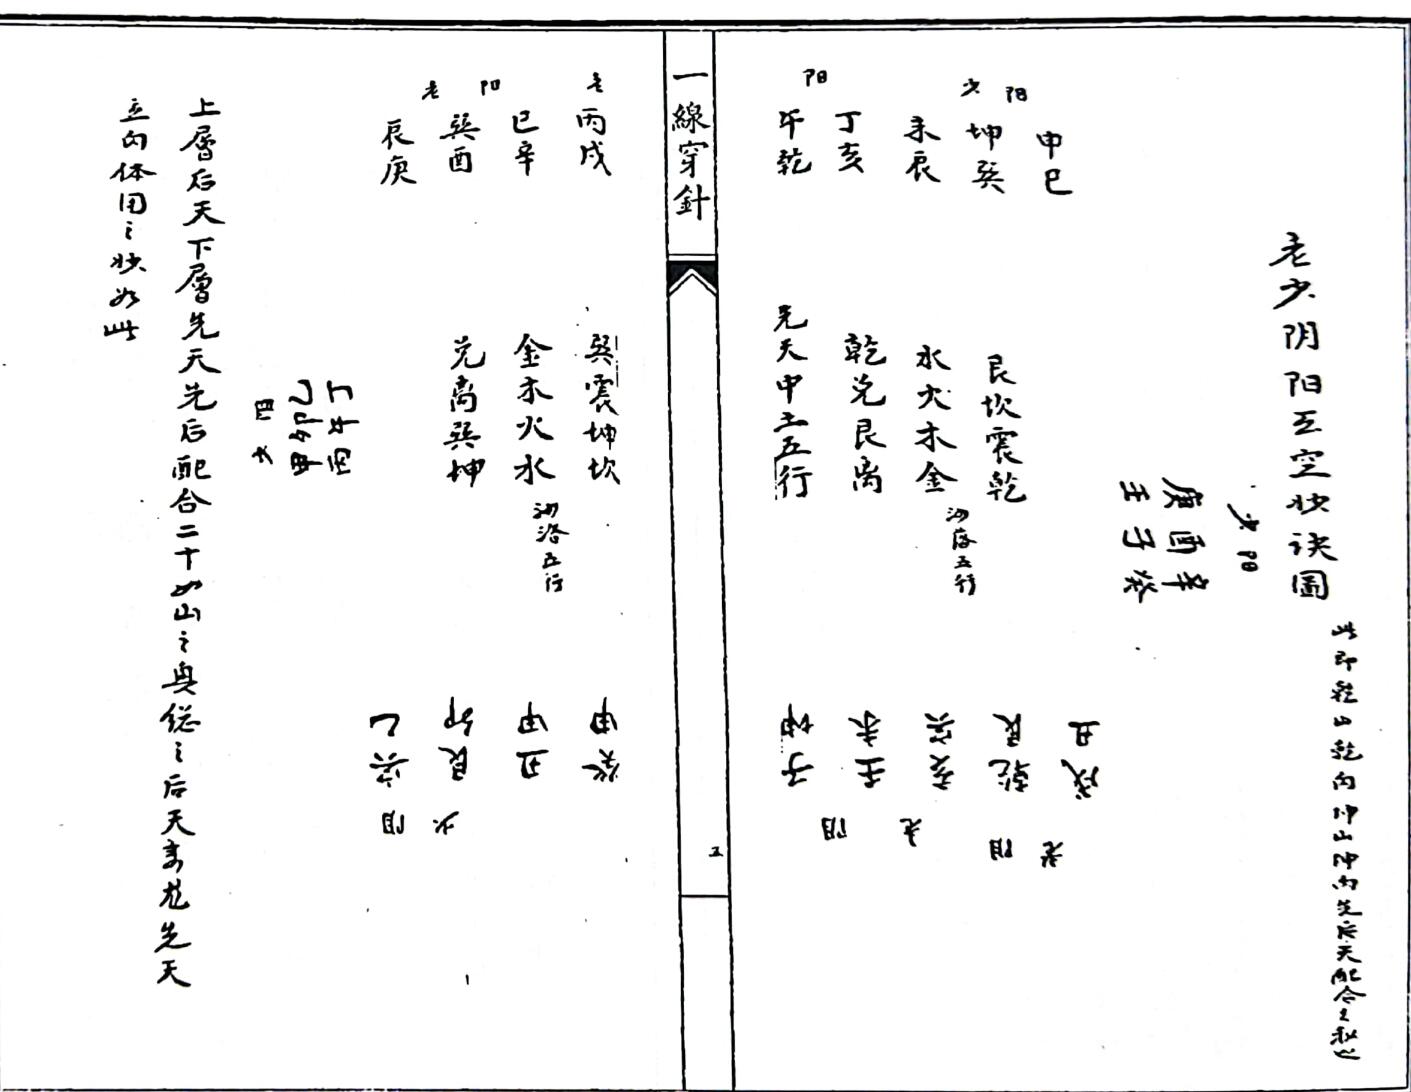 老少阴阳互空状诀圖
此即乾山乾向坤山坤向先后天配合之秘也
少阳
庚酉辛
壬子癸
少阳
申巳
坤巽
未辰
丁亥
午乾
阳
艮坎震乾
水火木金
乾兑艮离
先天中土五行
河落五行
丑戌
艮乾
寅亥
未壬
坤子
老阴
老阴
一線穿針
五
老
丙戌
巳辛
巽酉
辰庚
老阳
巽震坤坎
金木火水
兑离巽坤
河洛五行
丁午丙
乙卯甲
少阴
甲癸
甲丑
卯艮
乙寅
少阴
上層后天下層先天先后配合二十四山之奥総之后天离先天
立向体用之状如此